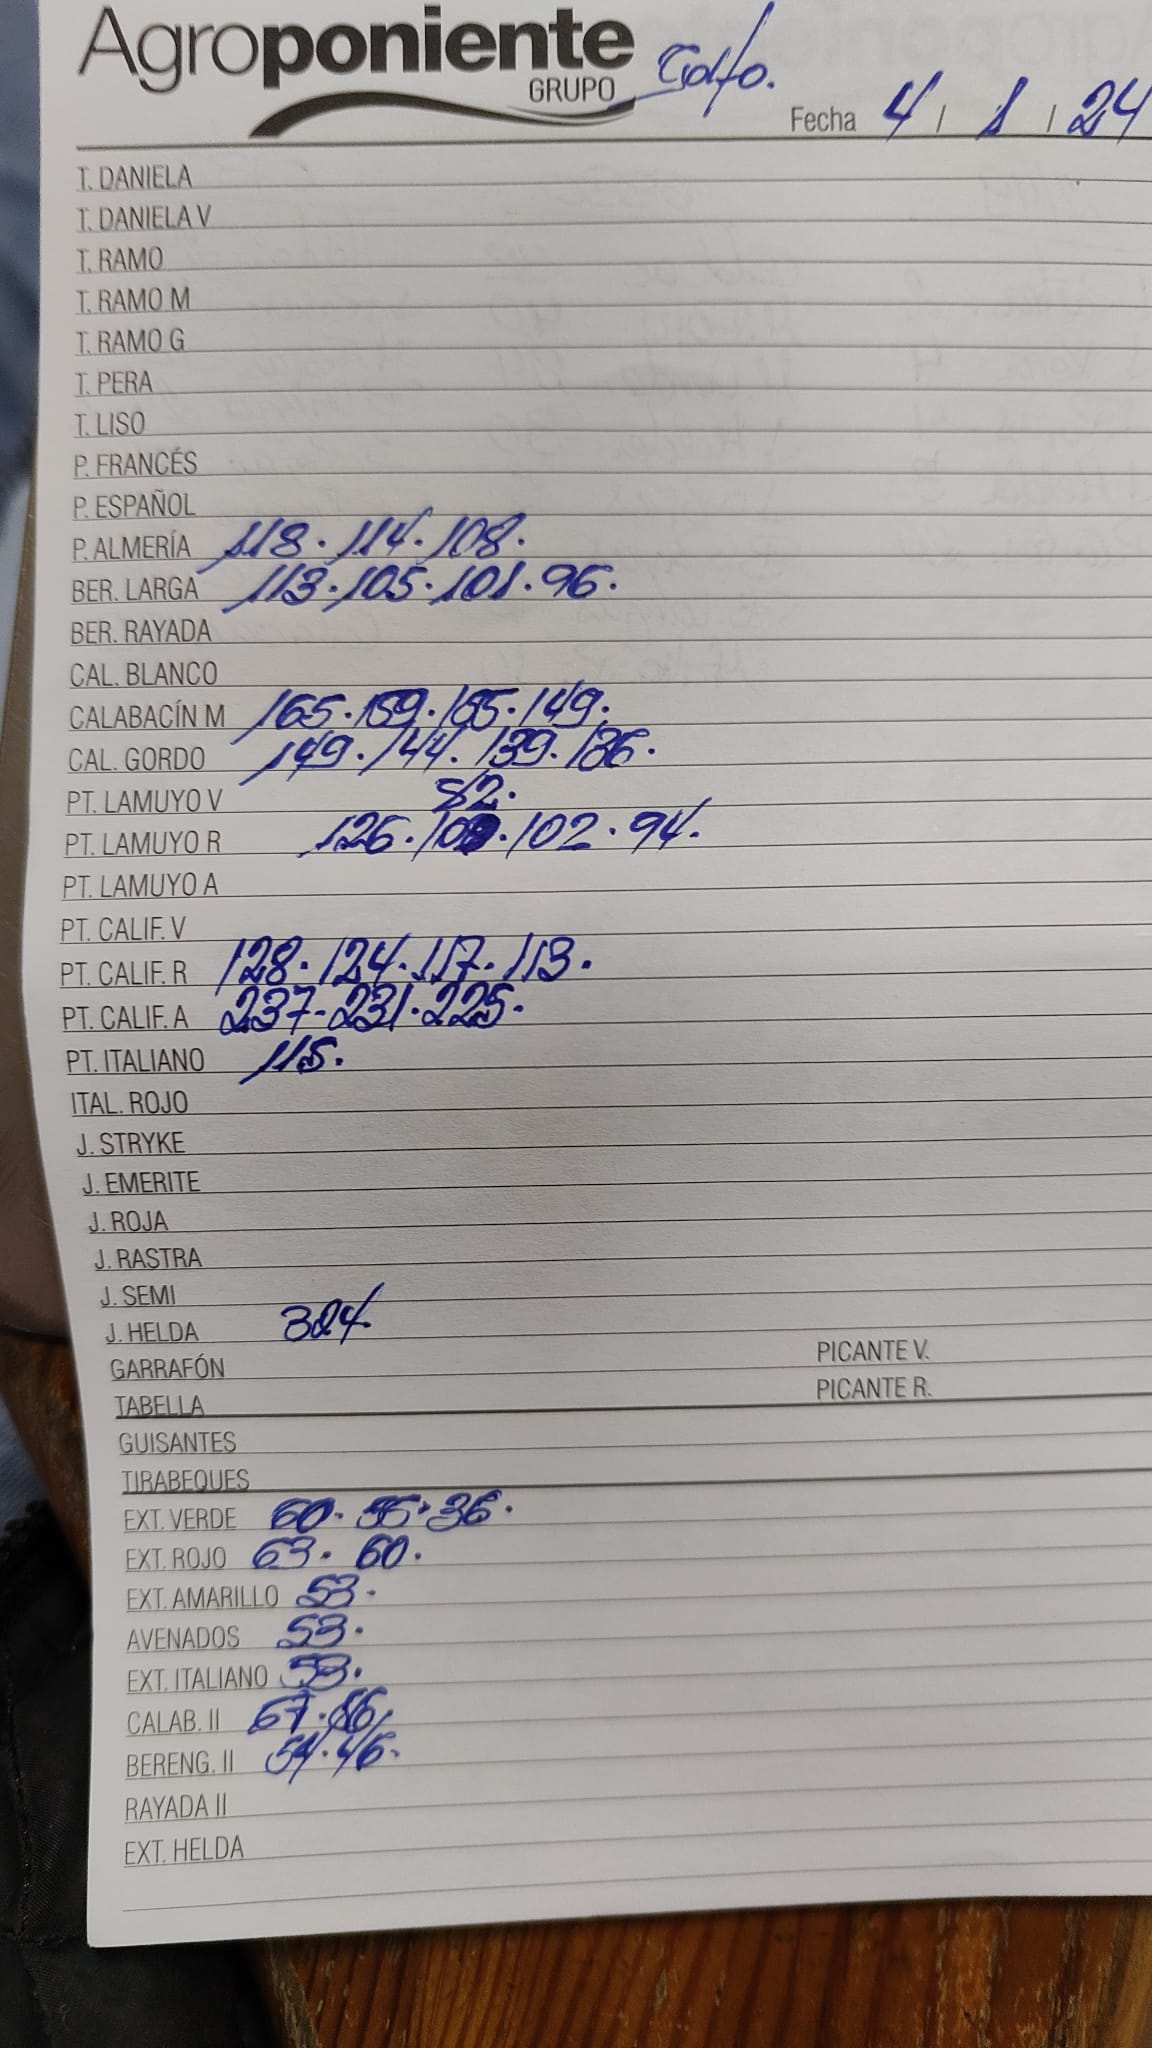 Agroponiente
GRUPO
Fecha 4 / 1 / 24
T. DANIELA
T. DANIELA V
T. RAMO
T. RAMO M
T. RAMO G
T. PERA
T. LISO
P. FRANCÉS
P. ESPAÑOL
P. ALMERÍA 118. 114. 108.
BER. LARGA 113. 105. 101. 96.
BER. RAYADA
CAL. BLANCO
CALABACÍN M 165. 159. 155. 149.
CAL. GORDO 149. 144. 139. 136.
PT. LAMUYO V 82.
PT. LAMUYO R 126. 102. 94.
PT. LAMUYO A
PT. CALIF. V
PT. CALIF. R 128. 124. 117. 113.
PT. CALIF. A 237. 231. 225.
PT. ITALIANO 115.
ITAL. ROJO
J. STRYKE
J. EMERITE
J. ROJA
J. RASTRA
J. SEMI
J. HELDA
GARRAFÓN PICANTE V.
TABELLA PICANTE R.
GUISANTES
TIRABEQUES
EXT. VERDE 60. 36.
EXT. ROJO 63. 60.
EXT. AMARILLO 53.
AVENADOS 53.
EXT. ITALIANO 53.
CALAB. II 67.
BERENG. II 54. 46.
RAYADA II
EXT. HELDA